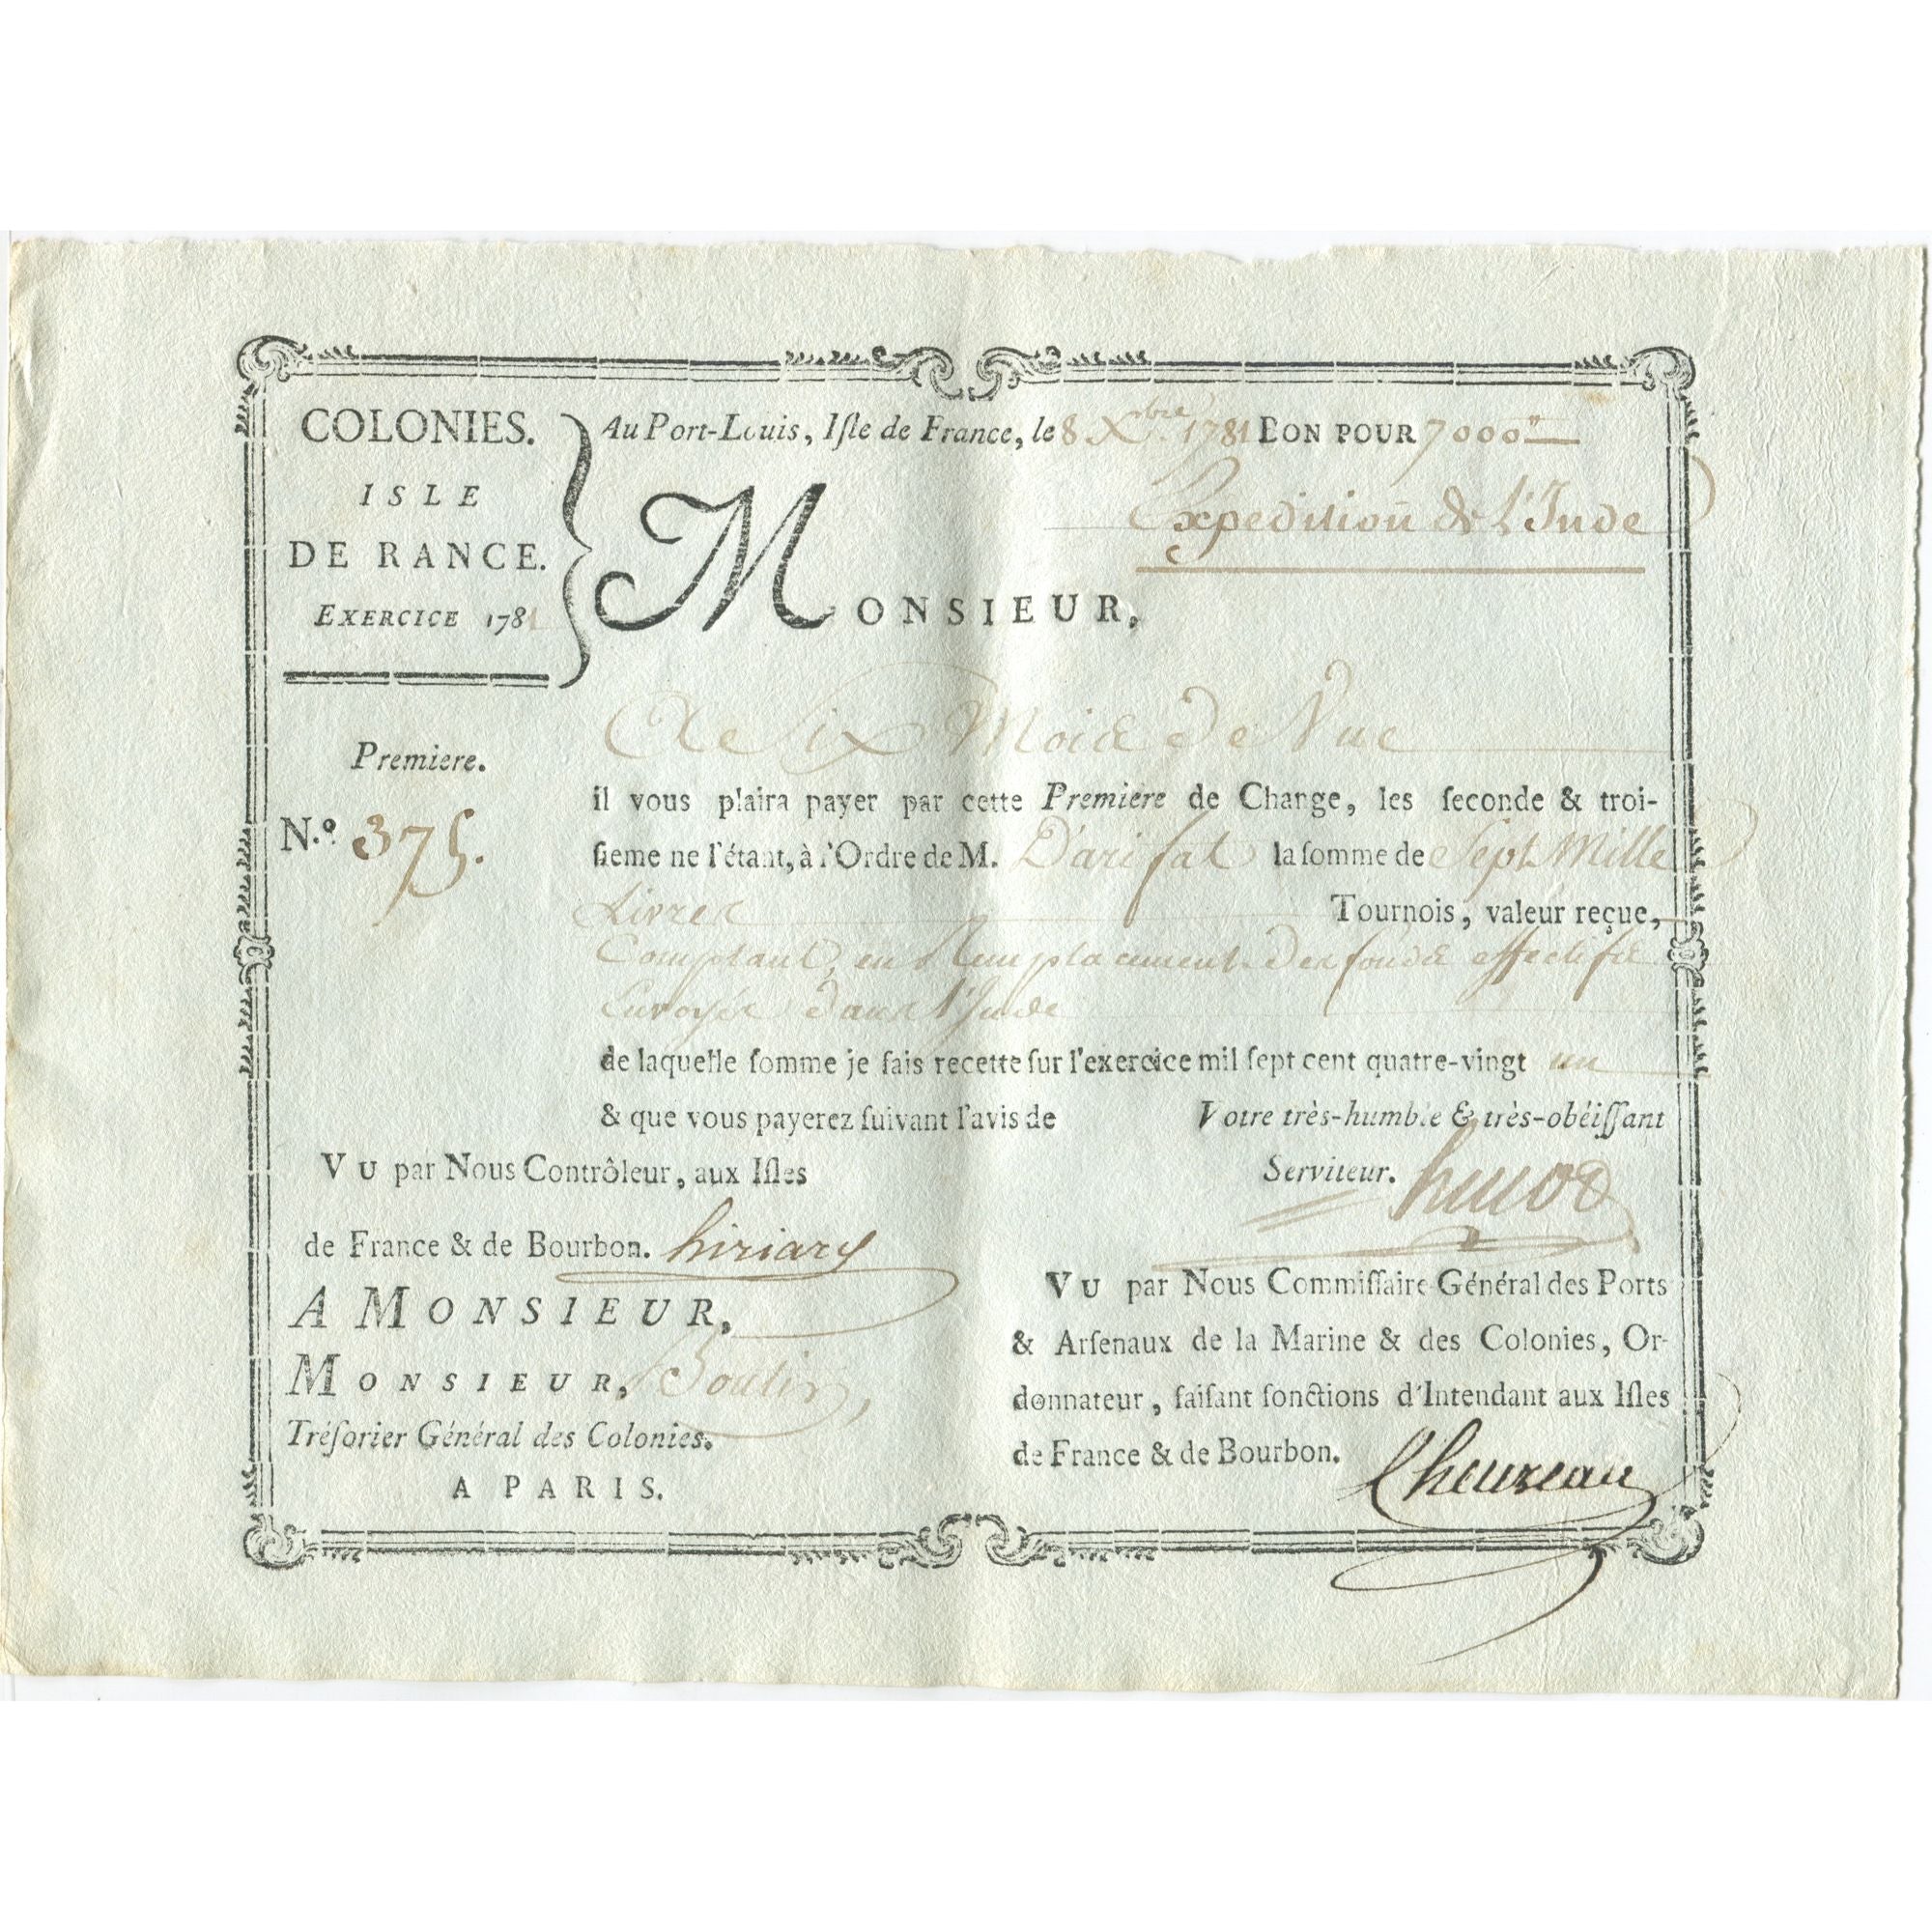 COLONIES.
ISLE
DE RANCE.
EXERCICE 1781
Au Port-Louis, Isle de France, le 8 Xbre. 1781 BON POUR 7000"
Expedition de L'Inde
MONSIEUR,
Premiere.
N.º 375.
A Six Mois de Vue
il vous plaira payer par cette Premiere de Change, les seconde & troi-
sieme ne l'étant, à l'Ordre de M. Darifat la somme de Sept Mille
Livres Tournois, valeur reçue,
Comptant, en Remplacement des fonds effectifs
Envoyés dans l'Inde
de laquelle somme je fais recette sur l'exercice mil sept cent quatre-vingt un
& que vous payerez suivant l'avis de Votre très-humble & très-obéissant
Serviteur.
VU par Nous Contrôleur, aux Isles
de France & de Bourbon. hiriart
A MONSIEUR,
MONSIEUR, Boutin,
Trésorier Général des Colonies.
A PARIS.
VU par Nous Commissaire Général des Ports
& Arsenaux de la Marine & des Colonies, Or-
donnateur, faisant fonctions d'Intendant aux Isles
de France & de Bourbon. Chevreau